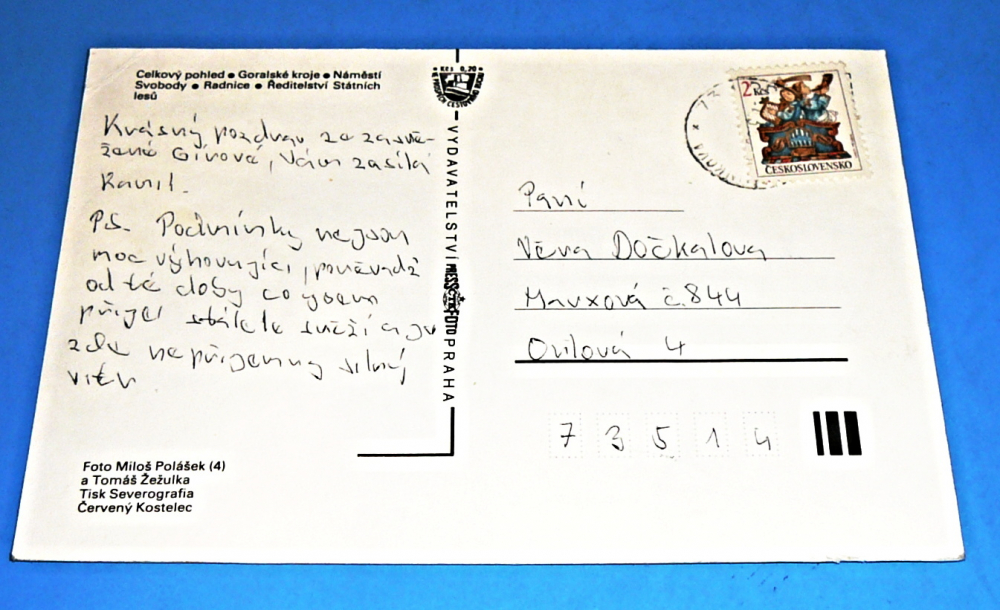 Celkový pohled ● Goralské kroje ● Náměstí
Svobody ● Radnice ● Ředitelství Státních
lesů
Krásný pozdrav ze zasně-
žené Gírové, Vám zasílá
Kamil.
P.S. Podmínky nejsou
moc vyhovující, poněvadž
od té doby co jsem
přijel stále sněží a je
zde nepříjemný silný
vítr
Foto Miloš Polášek (4)
a Tomáš Žežulka
Tisk Severografia
Červený Kostelec
Kčs 0,20
VYDAVATELSTVÍ PRESSFOTO PRAHA
2 Kčs
ČESKOSLOVENSKO
Paní
Věra Dočkalova
Marxová č. 844
Orlová 4
7 3 5 1 4